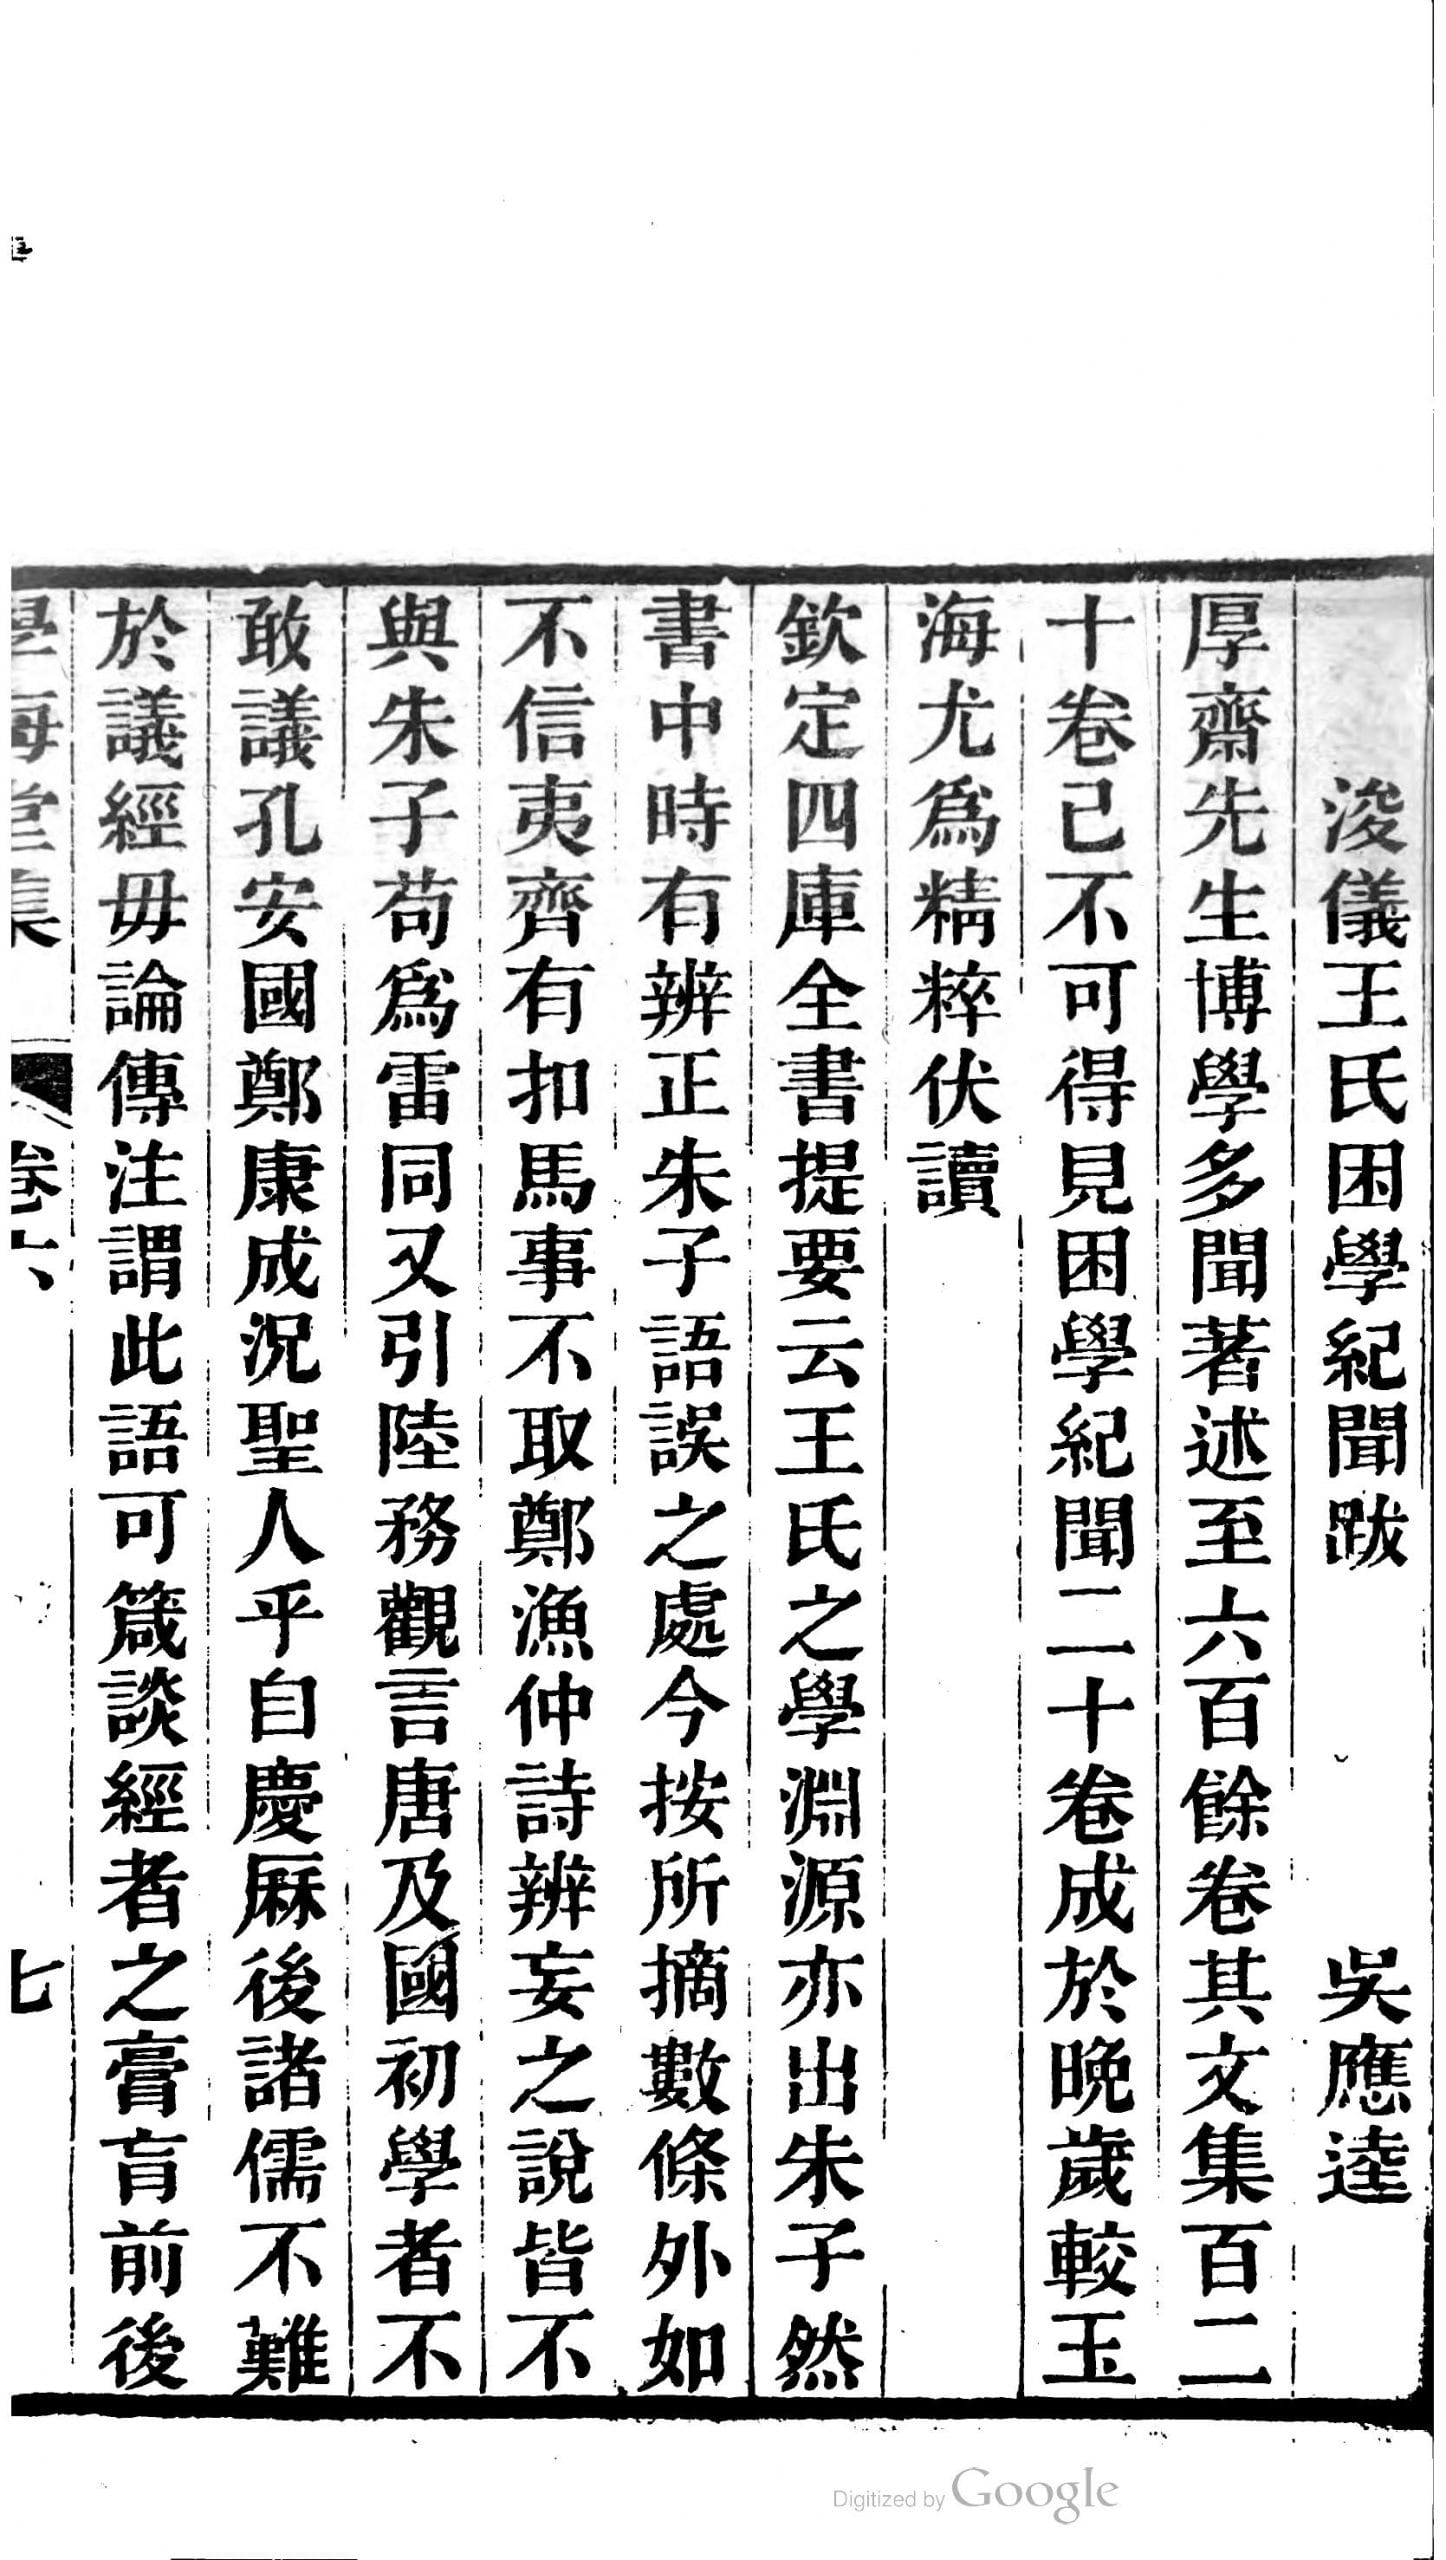 浚儀王氏困學紀聞跋 吳應逵
厚齋先生博學多聞著述至六百餘卷其文集百二
十卷已不可得見困學紀聞二十卷成於晚歲較玉
海尤爲精粹伏讀
欽定四庫全書提要云王氏之學淵源亦出朱子然
書中時有辨正朱子語誤之處今按所摘數條外如
不信夷齊有扣馬事不取鄭漁仲詩辨妄之說皆不
與朱子苟爲雷同又引陸務觀言唐及國初學者不
敢議孔安國鄭康成況聖人乎自慶厤後諸儒不難
於議經毋論傳注謂此語可箴談經者之膏肓前後
學海堂集 卷六 七
Digitized by Google